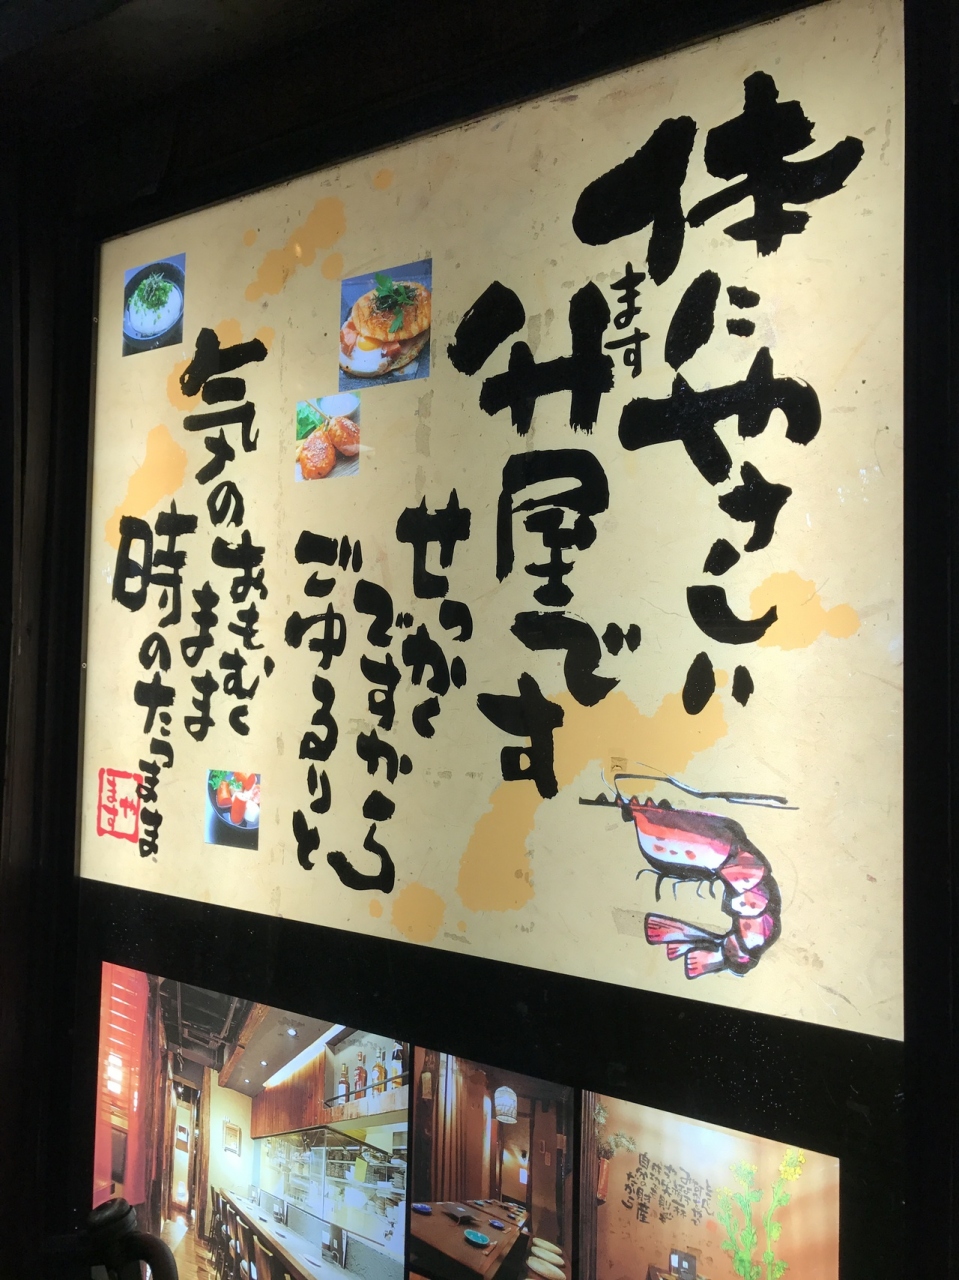 体にやさしい
ます
廾屋です
せっかく
ですから
ごゆるりと
気のおもむく
まま
時のたつまま